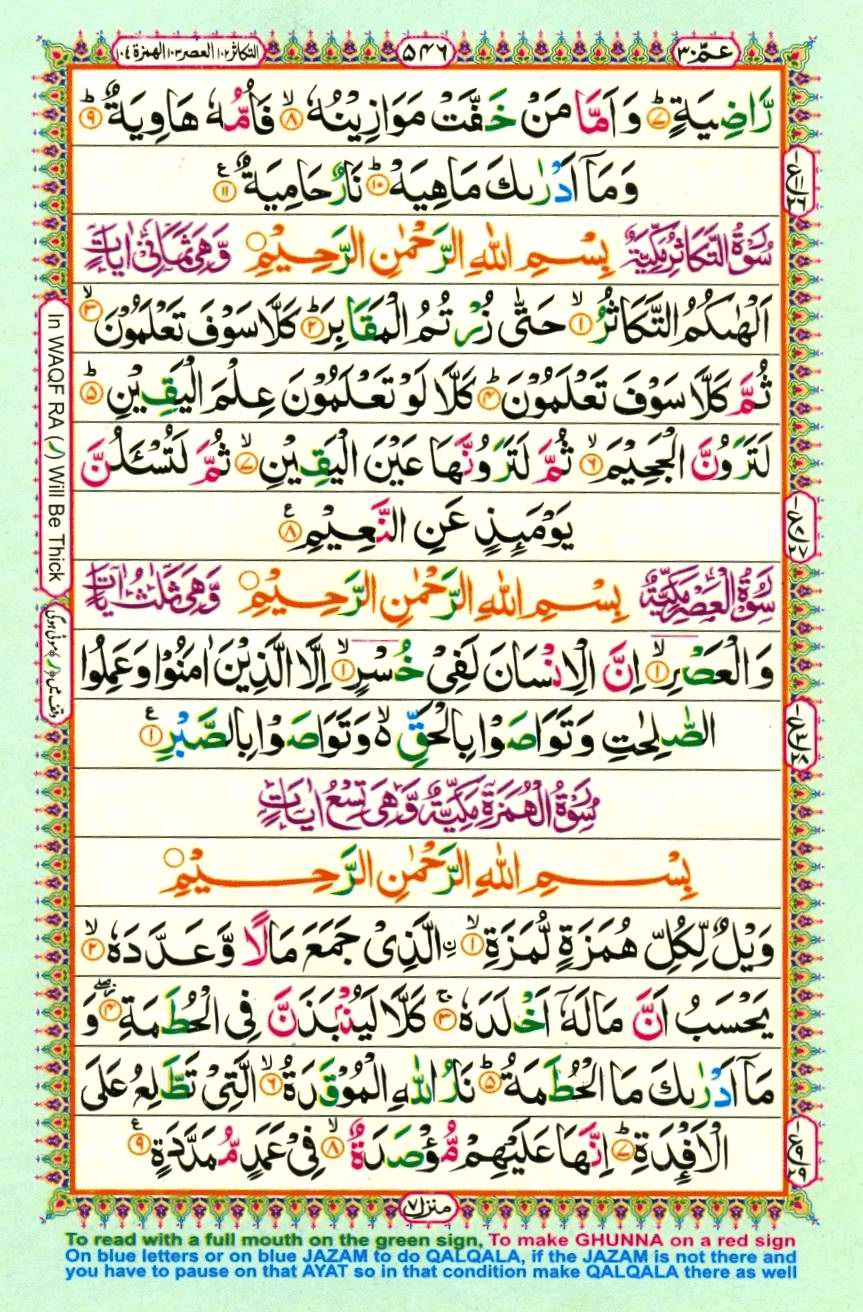 عمّ ٣٠
٥٤٦
التکاثر ١٠٢ العصر ١٠٣ الهمزة ١٠٤
رَّاضِیَةٍ ؕ‏﴿۷﴾ وَ اَمَّا مَنْ خَفَّتْ مَوَازِیْنُهٗ ۙ‏﴿۸﴾ فَاُمُّهٗ هَاوِیَةٌ ؕ‏﴿۹﴾
وَ مَاۤ اَدْرٰىكَ مَا هِیَهْ ؕ‏﴿۱۰﴾ نَارٌ حَامِیَةٌ ۠‏﴿۱۱﴾
سُوْرَةُ التَّکَاثُرِ مَکِّیَّةٌ بِسْمِ اللّٰهِ الرَّحْمٰنِ الرَّحِیْمِ وَّهِیَ ثَمَانِیْ اٰیَاتٍ
اَلْهٰىكُمُ التَّكَاثُرُ ۙ‏﴿۱﴾ حَتّٰی زُرْتُمُ الْمَقَابِرَ ؕ‏﴿۲﴾ كَلَّا سَوْفَ تَعْلَمُوْنَ ۙ‏﴿۳﴾
ثُمَّ كَلَّا سَوْفَ تَعْلَمُوْنَ ؕ‏﴿۴﴾ كَلَّا لَوْ تَعْلَمُوْنَ عِلْمَ الْیَقِیْنِ ؕ‏﴿۵﴾
لَتَرَوُنَّ الْجَحِیْمَ ۙ‏﴿۶﴾ ثُمَّ لَتَرَوُنَّهَا عَیْنَ الْیَقِیْنِ ۙ‏﴿۷﴾ ثُمَّ لَتُسْـَٔلُنَّ
یَوْمَىِٕذٍ عَنِ النَّعِیْمِ ۠‏﴿۸﴾
سُوْرَةُ الْعَصْرِ مَکِّیَّةٌ بِسْمِ اللّٰهِ الرَّحْمٰنِ الرَّحِیْمِ وَّهِیَ ثَلٰثُ اٰیَاتٍ
وَ الْعَصْرِ ۙ‏﴿۱﴾ اِنَّ الْاِنْسَانَ لَفِیْ خُسْرٍ ۙ‏﴿۱﴾ اِلَّا الَّذِیْنَ اٰمَنُوْا وَ عَمِلُوا
الصّٰلِحٰتِ وَ تَوَاصَوْا بِالْحَقِّ ۙ۬ وَ تَوَاصَوْا بِالصَّبْرِ ۠‏﴿۱﴾
سُوْرَةُ الْهُمَزَةِ مَکِّیَّةٌ وَّهِیَ تِسْعُ اٰیَاتٍ
بِسْمِ اللّٰهِ الرَّحْمٰنِ الرَّحِیْمِ
وَیْلٌ لِّكُلِّ هُمَزَةٍ لُّمَزَةِ ۙ‏﴿۱﴾ ِ۟الَّذِیْ جَمَعَ مَالًا وَّ عَدَّدَهٗ ۙ‏﴿۲﴾
یَحْسَبُ اَنَّ مَالَهٗۤ اَخْلَدَهٗ ۚ‏﴿۳﴾ كَلَّا لَیُنْۢبَذَنَّ فِی الْحُطَمَةِ ؗۖ‏﴿۴﴾ وَ
مَاۤ اَدْرٰىكَ مَا الْحُطَمَةُ ؕ‏﴿۵﴾ نَارُ اللّٰهِ الْمُوْقَدَةُ ۙ‏﴿۶﴾ الَّتِیْ تَطَّلِعُ عَلَی
الْاَفْـِٕدَةِ ؕ‏﴿۷﴾ اِنَّهَا عَلَیْهِمْ مُّؤْصَدَةٌ ۙ‏﴿۸﴾ فِیْ عَمَدٍ مُّمَدَّدَةٍ ۠‏﴿۹﴾
منزل ٧
In WAQF RA (ر) Will Be Thick
To read with a full mouth on the green sign, To make GHUNNA on a red sign
On blue letters or on blue JAZAM to do QALQALA, if the JAZAM is not there and
you have to pause on that AYAT so in that condition make QALQALA there as well